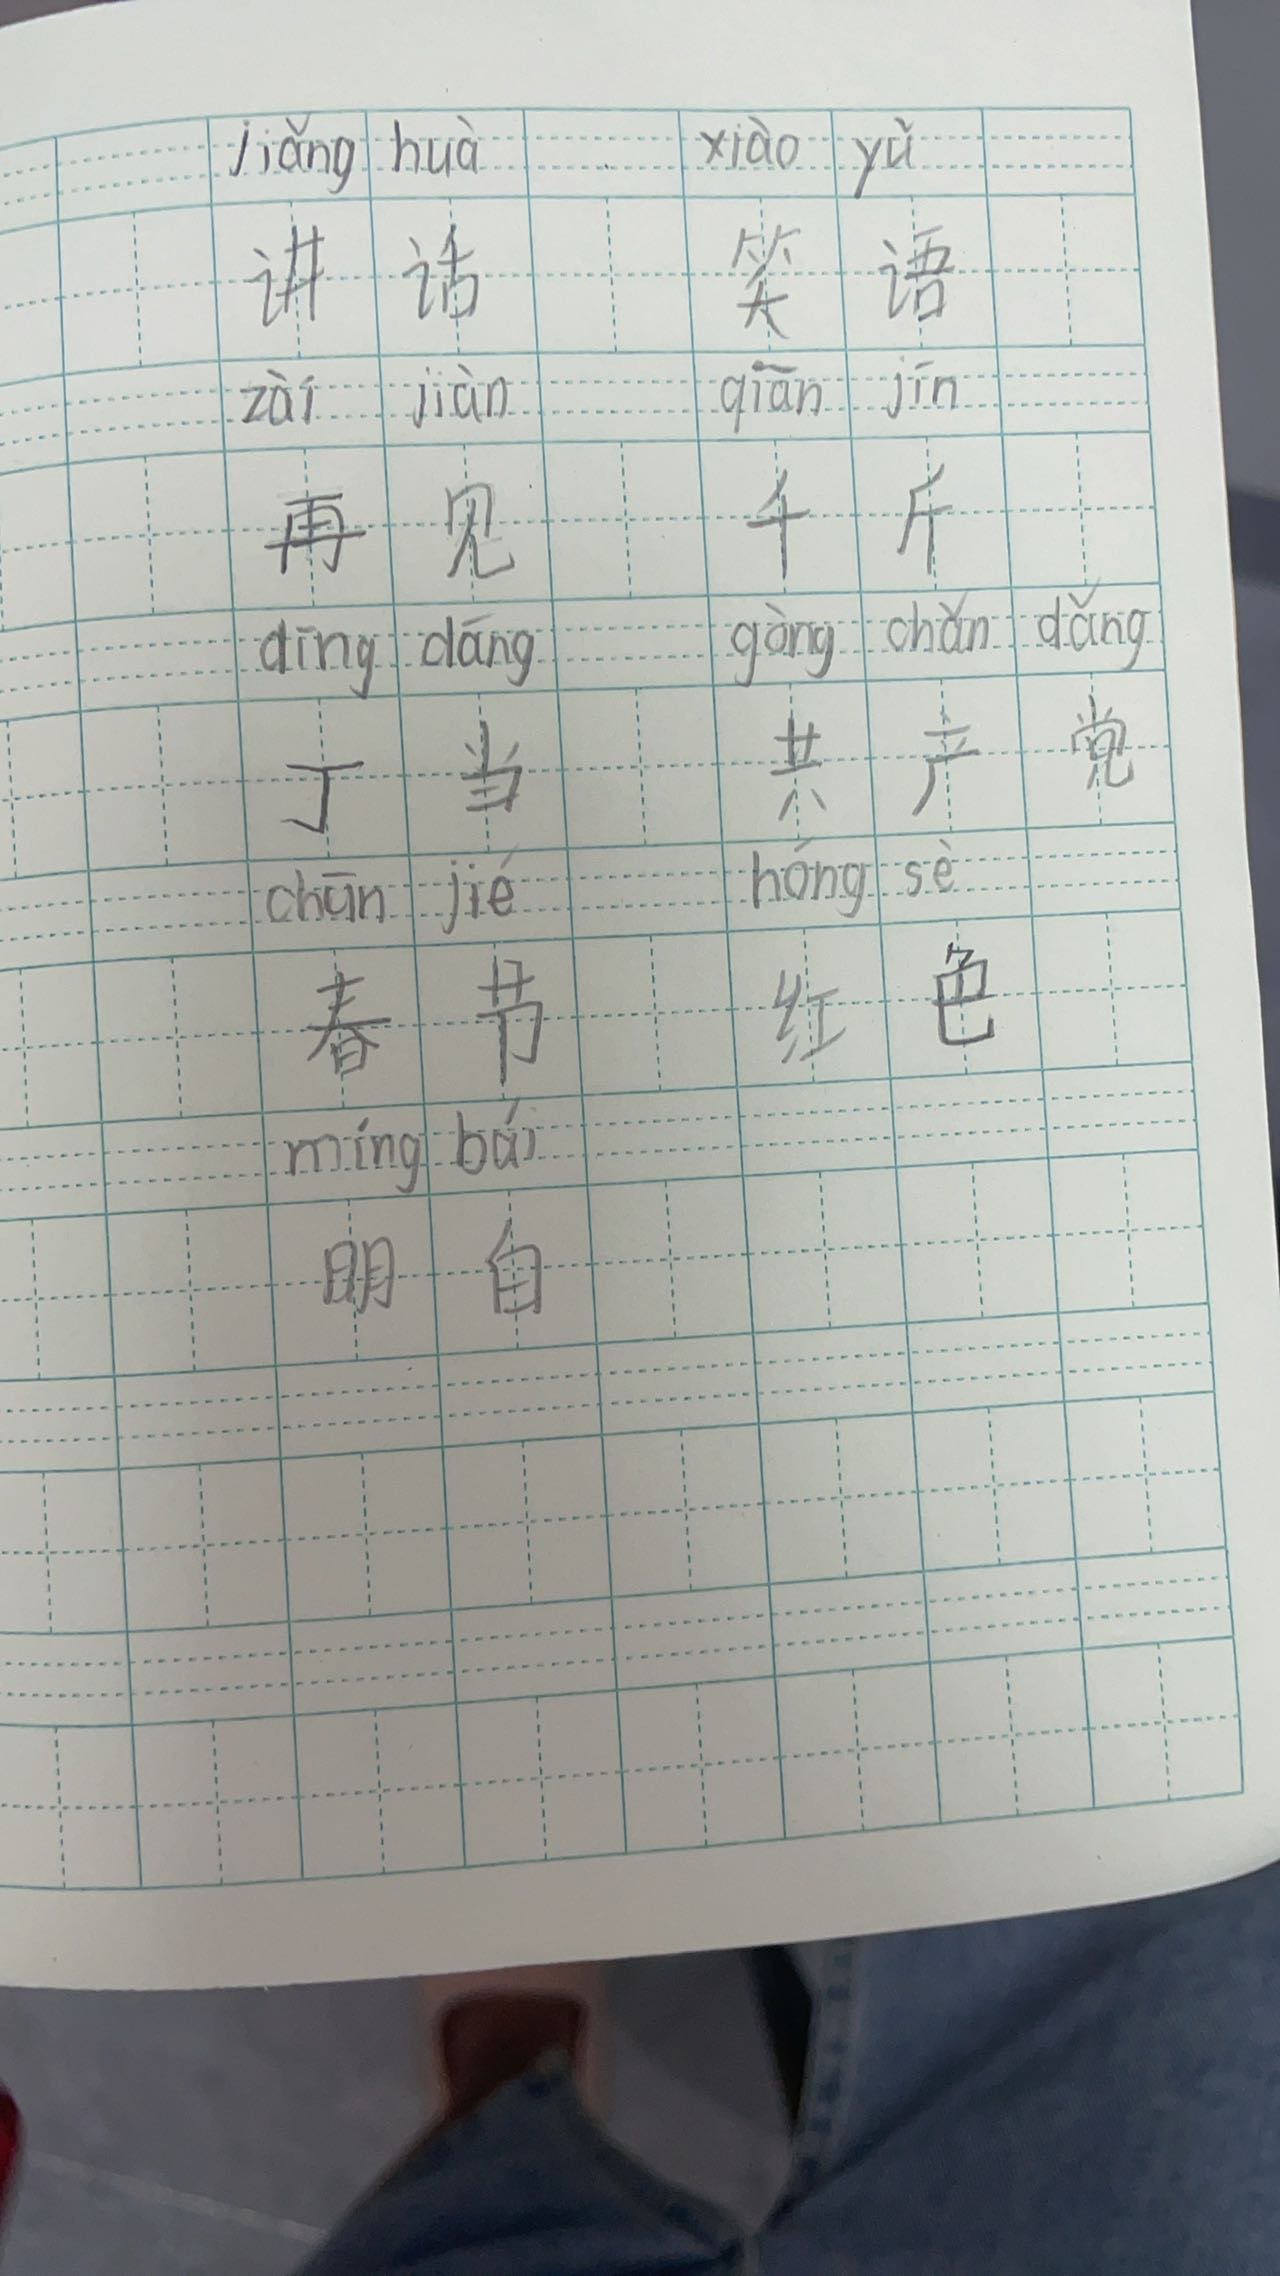 jiǎng huà xiào yǔ
讲话 笑语
zài jiàn qiān jīn
再见 千斤
dīng dāng gòng chǎn dǎng
丁当 共产党
chūn jié hóng sè
春节 红色
míng bái
明自